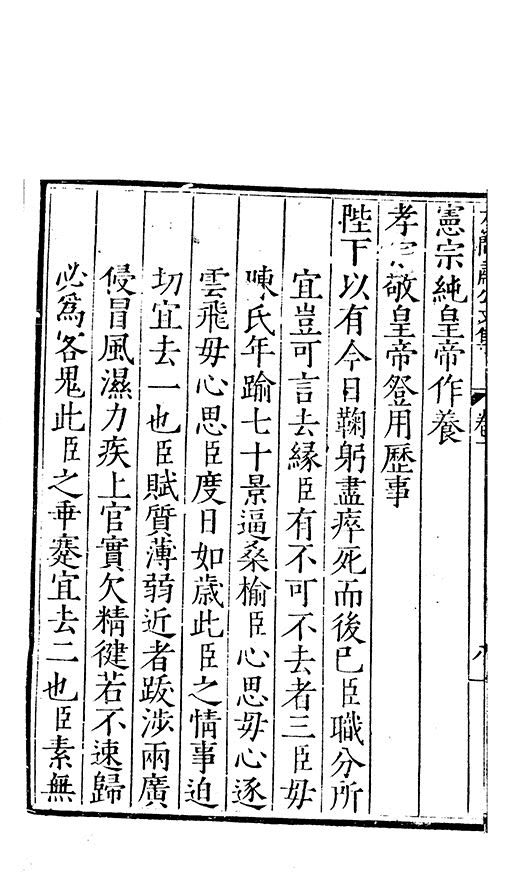 憲宗純皇帝作養
孝宗敬皇帝登用歷事
陛下以有今日鞠躬盡瘁死而後已臣職分所
宜豈可言去緣臣有不可不去者三臣毋
陳氏年踰七十景逼桑榆臣心思毋心逐
雲飛毋心思臣度日如歲此臣之情事迫
切宜去一也臣賦質薄弱近者跋涉兩廣
侵冒風濕力疾上官實欠精健若不速歸
必爲各鬼此臣之乖蹇宜去二也臣素無
公文集
卷
八